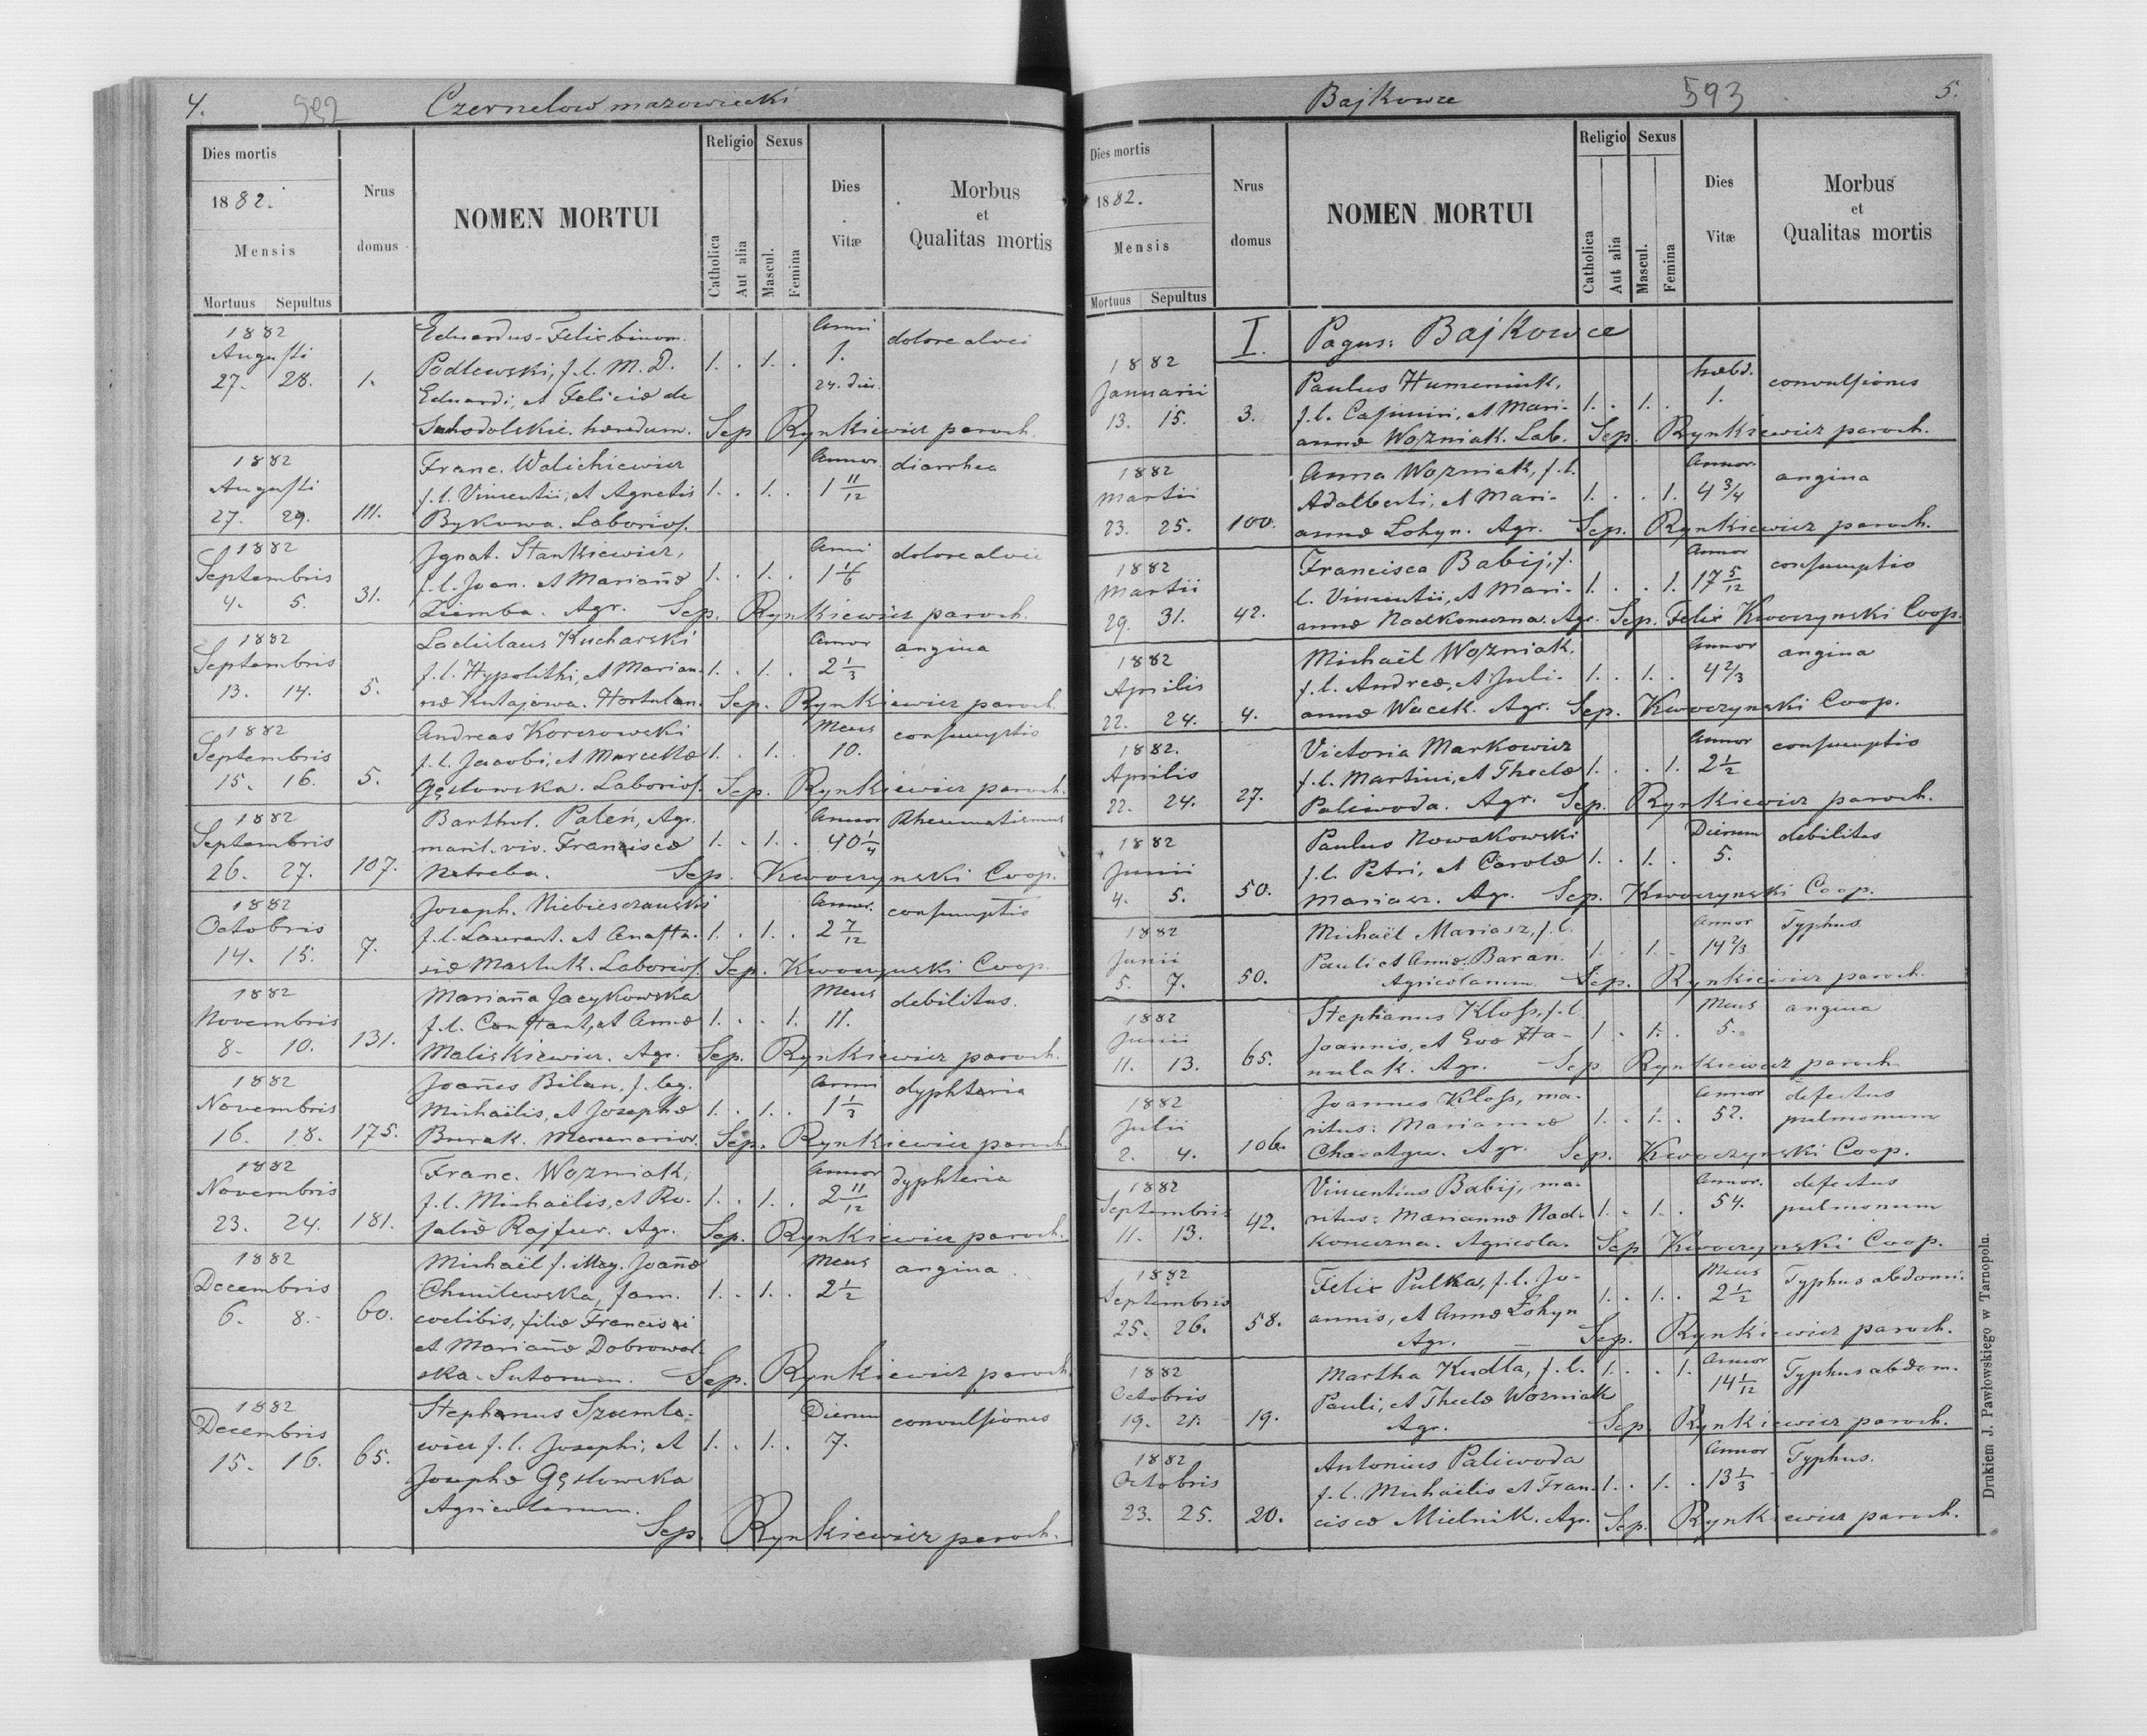 4.
592
Czernelow mazowiecki
Dies mortis
1882.
Mensis
Mortuus Sepultus
Nrus domus
NOMEN MORTUI
Religio
Catholica
Aut alia
Sexus
Mascul.
Femina
Dies Vitæ
Morbus
et
Qualitas mortis
1882 Eduardus-Felix binom. Anni dolore alvei
Augusti Podlewski, f. l. M. D. 1. . 1. . 1.
27. 28. 1. Eduardi, et Feliciæ de 24. dies.
Suhodolskie. hæredum. Sep Rynkiewicz paroch.
1882 Franc. Walichiewicz Annor. diarrhea
Augusti f. l. Vincentii, et Agnetis 1. . 1. . 1 11/12
27. 29. 111. Bykowa. Laborios.
1882 Ignat. Stankiewicz, Anni dolore alvei
Septembris f. l. Joan. et Mariañæ 1. . 1. . 1 1/6
4. 5. 31. Ziemba. Agr. Sep. Rynkiewicz paroch.
1882 Ladislaus Kucharski Annor angina
Septembris f. l. Hypolithi, et Marian- 1. . 1. . 2 1/3
13. 14. 5. næ Kutajowa. Hortulan. Sep. Rynkiewicz paroch.
1882 Andreas Korczowski Mens consumptio
Septembris f. l. Jacobi, et Marcellæ 1. . 1. . 10.
15. 16. 5. Gęstowska. Laborios. Sep. Rynkiewicz paroch.
1882 Barthol. Paleń, Agr. Annor Rheumatismus
Septembris marit. viv. Franciscæ 1. . 1. . 40 1/4
26. 27. 107. Natreba. Sep. Kwoczynski Coop.
1882 Joseph. Niebieszczanski Annor. consumptio
Octobris f. l. Laurent. et Anasta- 1. . 1. . 2 7/12
14. 15. 7. siæ Masluk. Laborios. Sep. Kwoczynski Coop.
1882 Mariaña Jacykowska Mens debilitas.
Novembris f. l. Constant, et Annæ 1. . . 1. 11.
8. 10. 131. Maliskiewicz. Agr. Sep. Rynkiewicz paroch.
1882 Joañes Bilan, f. leg. Anni dyphteria
Novembris Michaëlis, et Josephæ 1. . 1. . 1 1/3
16. 18. 175. Burak. Mercenarior. Sep. Rynkiewicz paroch.
1882 Franc. Wozniak, Annor dyphteria
Novembris f. l. Michaëlis, et Ro- 1. . 1. . 2 11/12
23. 24. 181. saliæ Rajfur. Agr. Sep. Rynkiewicz paroch.
1882 Michaël f. illeg. Joañæ Mens angina
Decembris Chmilewska, fam. 1. . 1. . 2 1/2
6. 8. 60. coelibis, filiæ Francisci
et Mariañæ Dobrowol-
ska. Sutorum. Sep. Rynkiewicz paroch.
1882 Stephanus Szumla- Dierum convulsiones
Decembris wicz f. l. Josephi, et 1. . 1. . 7.
15. 16. 65. Josephæ Gęstowska
Agricolarum.
Sep. Rynkiewicz paroch.
Bajkowce
593
5.
Dies mortis
1882.
Mensis
Mortuus Sepultus
Nrus domus
NOMEN MORTUI
Religio
Catholica
Aut alia
Sexus
Mascul.
Femina
Dies Vitæ
Morbus
et
Qualitas mortis
I. Pagus: Bajkowce
1882 Paulus Humeniuk, hæbd. convulsiones
Januarii f. l. Casimiri, et Mari- 1. . 1. . 1.
13. 15. 3. annæ Wozniak. Lab. Sep. Rynkiewicz paroch.
1882 Anna Wozniak, f. l. Annor. angina
Martii Adalberti, et Mari- 1. . . 1. 4 3/4
23. 25. 100. annæ Łohyn. Agr. Sep. Rynkiewicz paroch.
1882 Francisca Babij, f. Annor consumptio
Martii l. Vincentii, et Mari- 1. . . 1. 17 5/12
29. 31. 42. annæ Nadkonczna. Agr. Sep. Felix Kwoczynski Coop.
1882 Michaël Wozniak, Annor angina
Aprilis f. l. Andreæ, et Juli- 1. . 1. . 4 2/3
22. 24. 4. annæ Wacek. Agr. Sep. Kwoczynski Coop.
1882. Victoria Markowicz Annor consumptio
Aprilis f. l. Martini, et Theclæ 1. . . 1. 2 1/2
22. 24. 27. Paliwoda. Agr. Sep. Rynkiewicz paroch.
1882 Paulus Nowakowski Dierum debilitas
Junii f. l. Petri, et Carolæ 1. . 1. . 5.
4. 5. 50. Mariasz. Agr. Sep. Kwoczynski Coop.
1882 Michaël Mariasz, f. l. Annor Typhus
Junii Pauli et Annæ Baran. 1. . 1. . 14 2/3
5. 7. 50. Agricolarum. Sep. Rynkiewicz paroch.
1882 Stephanus Kloss, f. l. Mens angina
Junii Joannis, et Evæ Ha- 1. . 1. . 5.
11. 13. 65. nulak. Agr. Sep Rynkiewicz paroch
1882 Joannes Kloss, ma- Annor defectus
Julii ritus: Mariannæ 1. . 1. . 52. pulmonum
2. 4. 106. Charatyn. Agr. Sep. Kwoczynski Coop.
1882 Vincentius Babij, ma- Annor. defectus
Septembris ritus: Mariannæ Nad- 1. . 1. . 54. pulmonum
11. 13. 42. konczna. Agricola. Sep Kwoczynski Coop.
1882 Felix Pulka, f. l. Jo- Mens Typhus abdomi.
Septembris annis, et Annæ Łohyn 1. . 1. . 2 1/2
25. 26. 58. Agr. Sep. Rynkiewicz paroch.
1882 Martha Kudła, f. l. 1. . . 1. Annor Typhus abdom.
Octobris Pauli, et Theclæ Wozniak 14 1/12
19. 21. 19. Agr. Sep Rynkiewicz paroch.
1882 Antonius Paliwoda Annor Typhus.
Octobris f. l. Michaëlis et Fran- 1. . 1. . 13 1/3
23. 25. 20. ciscæ Mielnik. Agr. Sep. Rynkiewicz paroch.
Drukiem J. Pawłowskiego w Tarnopolu.